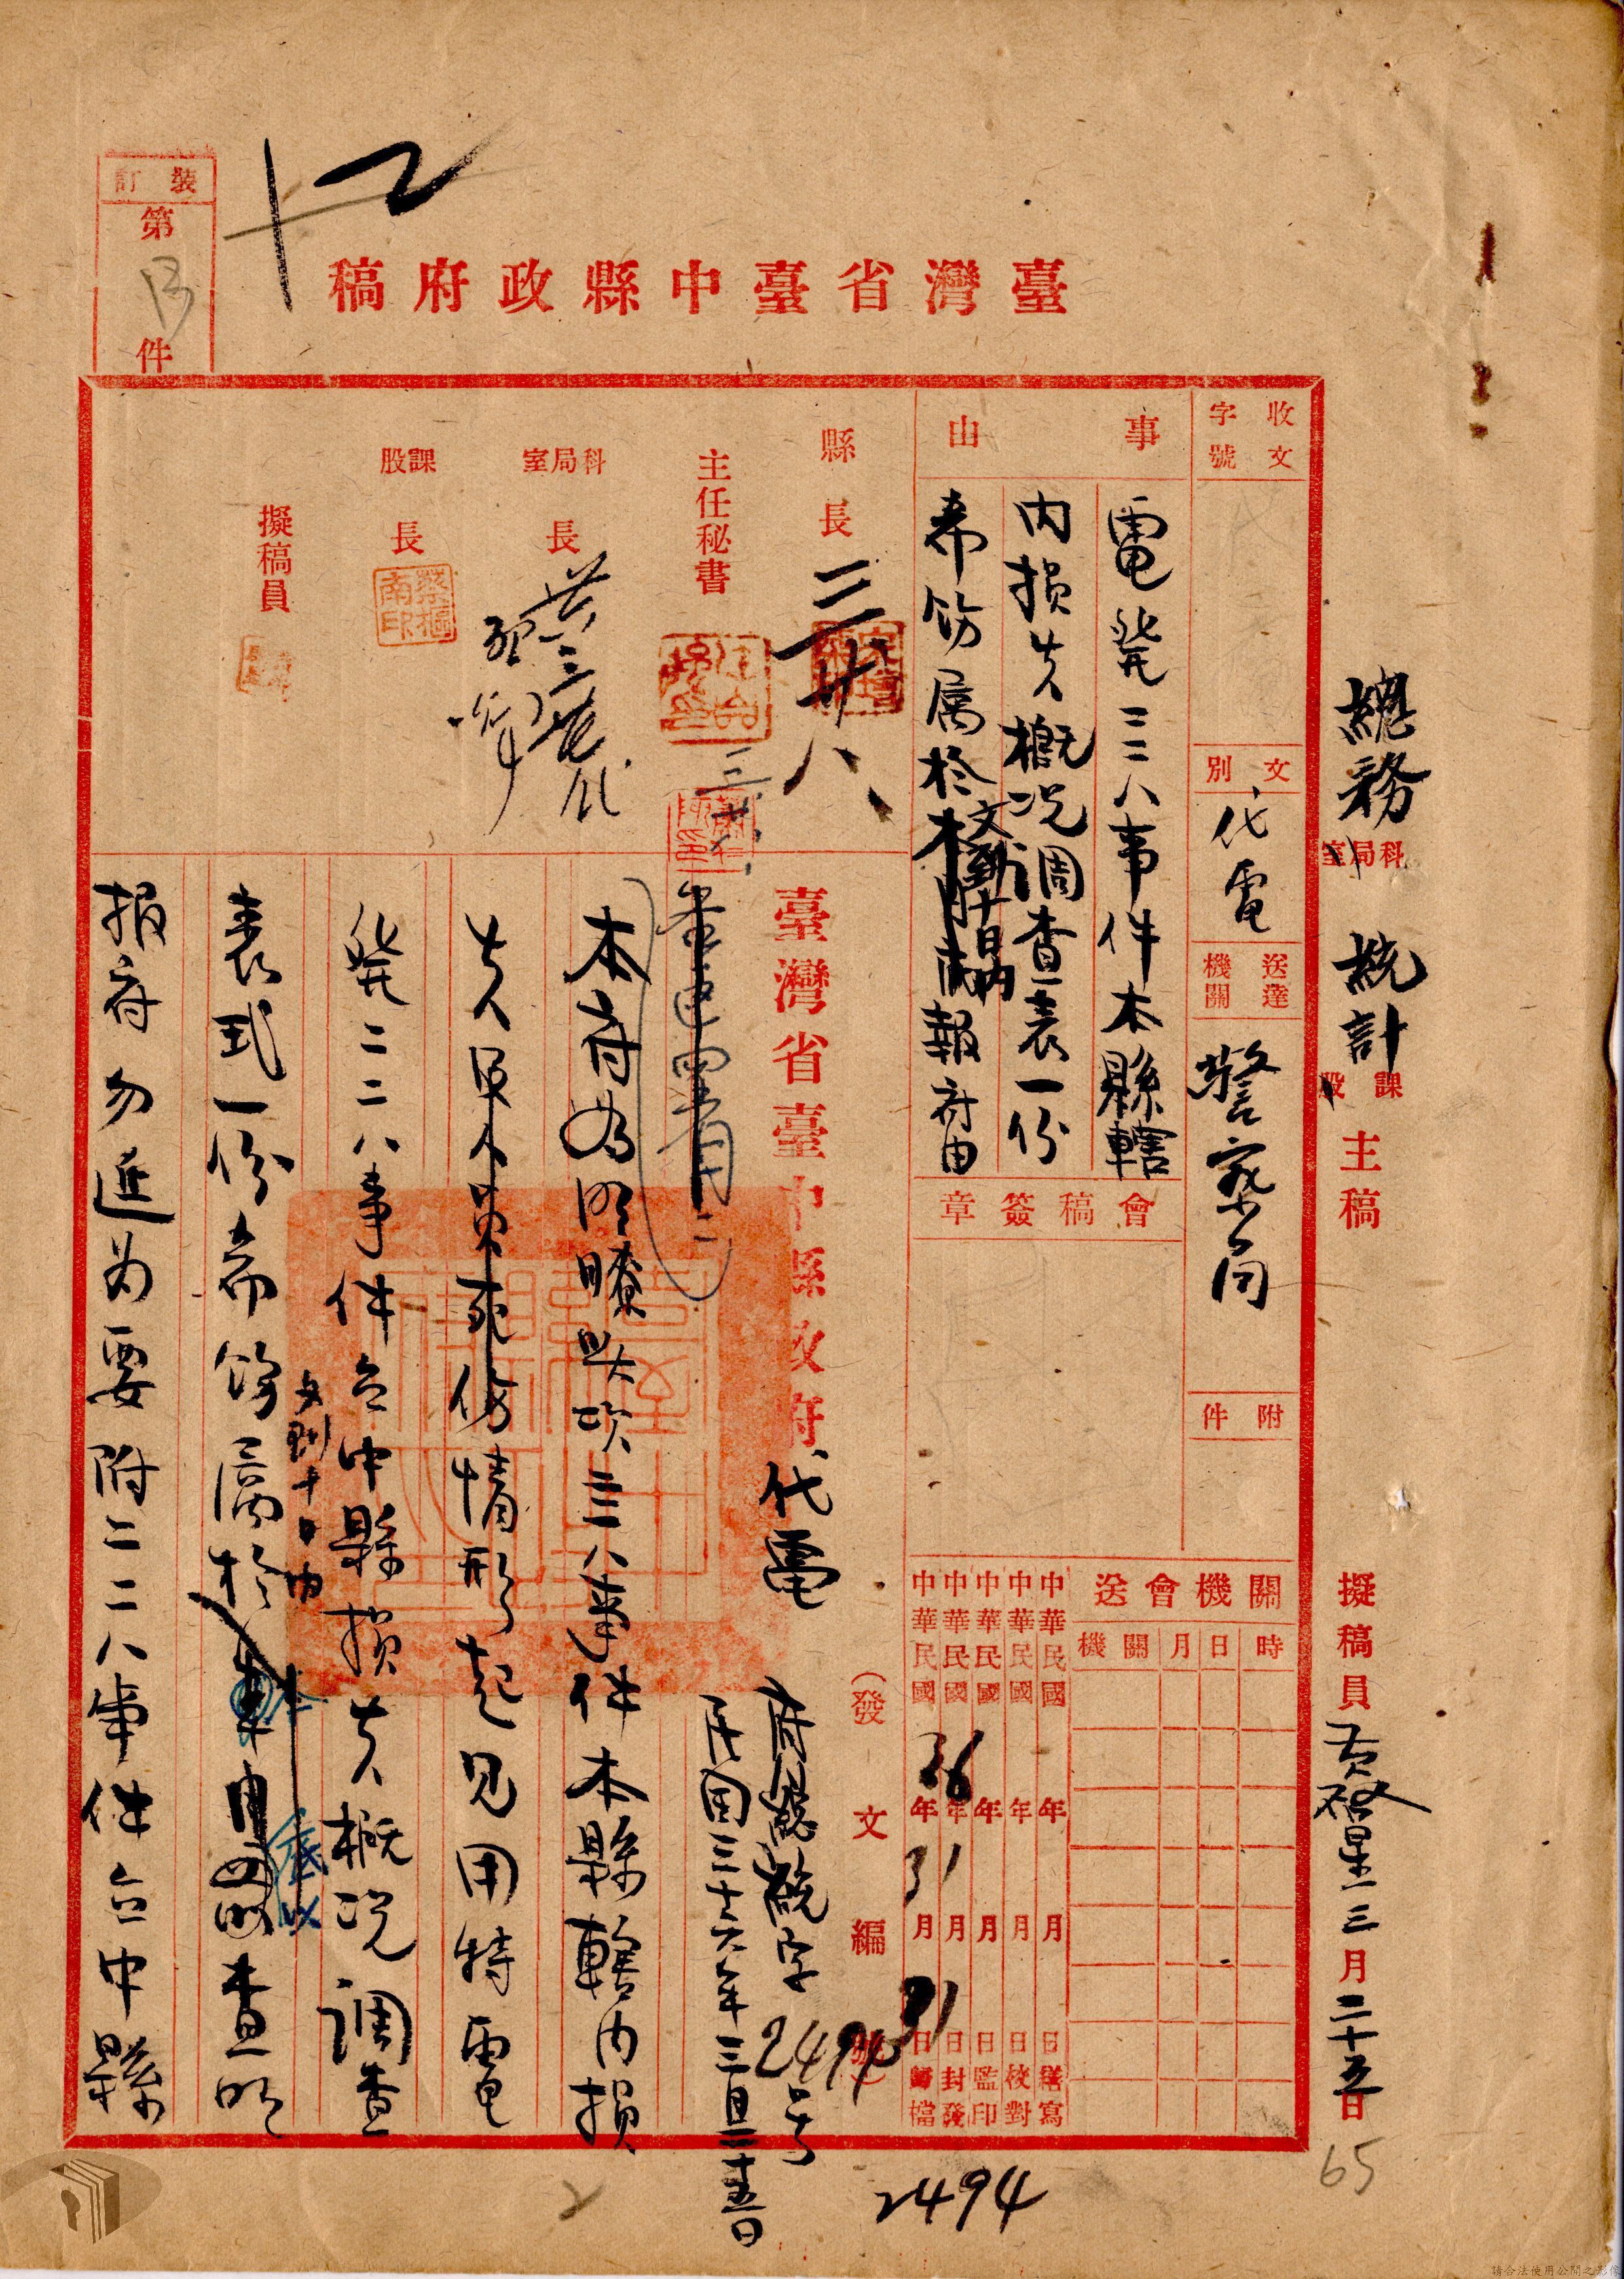 臺灣省臺中縣政府稿
裝訂
第
13
件
總務
科局室
統計
課股
主稿
擬稿員
黃啓星
三月二十五日
收文
字號
文別
代電
送達機關
警察局
附件
事由
電發二二八事件本縣轄
內損失概況調查表一份
希飭属於文到十日內報府由
會稿簽章
關機會送
時
日
月
關機
中華民國 年 月 日繕寫
中華民國 年 月 日校對
中華民國 年 月 日監印
中華民國 年 月 日封發
中華民國36年 31月 31日歸檔
縣長
三 廿八
主任秘書
科局室
長
課股
長
蔡樞南印
擬稿員
(發文編號)
臺灣省臺中縣政府代電
府總統字2494号
民国三十六年三月二十五日
本府为明瞭此次二二八事件本縣轄内損
失及人員死伤情形起見用特電
發二二八事件台中縣損失概况調查
表式一份希飭属於
文到十日内
查明
报府勿延为要附二二八事件台中縣
2494
65
2
請合法使用公開之影像